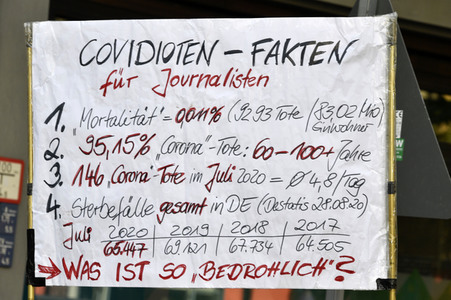 COVIDIOTEN – FAKTEN
für Journalisten
1. "Mortalität" = 0,011% (9293 Tote / 83,02 Mio Einwohner)
2. 95,15% "Corona"-Tote: 60–100+ Jahre
3. 146 "Corona"-Tote im Juli 2020 = Ø 4,8/Tag
4. Sterbefälle gesamt in DE (Destatis 28.08.20)
Juli 2020 | 2019 | 2018 | 2017
65.447 | 69.121 | 67.734 | 64.505
→ WAS IST SO "BEDROHLICH"?